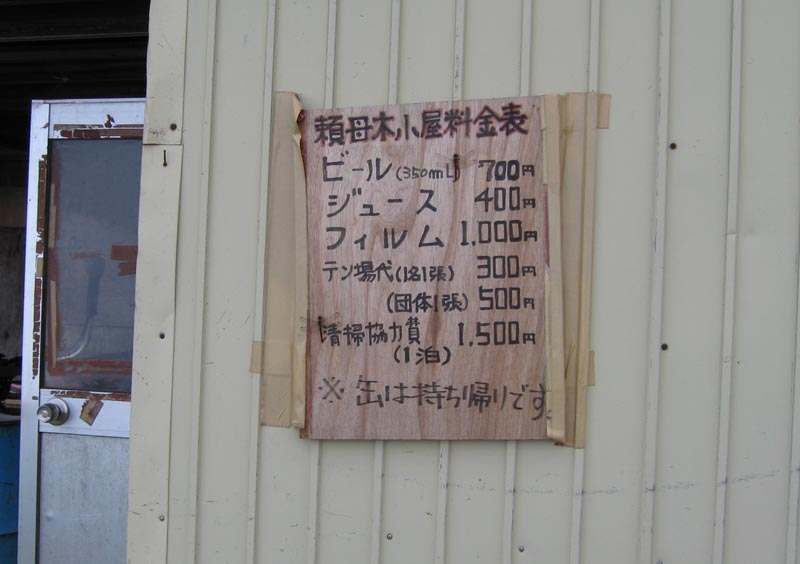 頼母木小屋料金表
ビール(350mL) 700円
ジュース 400円
フィルム 1.000円
テン場代(1名1張) 300円
(団体1張) 500円
清掃協力費 1.500円
(1泊)
※ 缶は持ち帰りです。